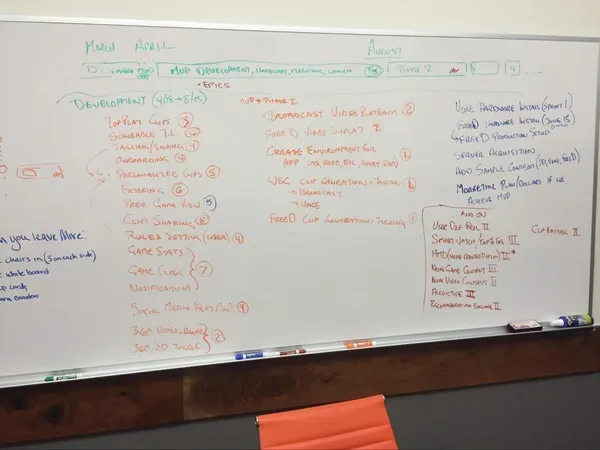 March April August
MVP Development, Hardware, Marketing, Launch
Phase 2
4 ...
- Epics
Development (4/18 → 8/15)
Top Play Clips 3
Scrubable T.L. 2
Tagging/Saving 4
Onboarding 4
Personalized Clips 5
Filtering 6
Prev. Game View 5
Clip Sharing 8
Rules Setting 4
Game Stats
Game Clock 7
Notifications
Social Media 9
360 Video
360/2D Toggle 2
MVP + Phase I
Broadcast Video Playback 2
FreeD Video Display 2
Create Environment for
App
WSC Clip Generation + Tagging
→ Broadcast
→ Voke
FreeD Clip Generation + Tagging 1
Voke Hardware Install (Sprint 1)
FreeD Hardware Install (June 15)
→ FreeD Production Setup
Server Acquisition
Add Sample Content (2D, Voke, FreeD)
Marketing Plan/Dollars if we
Achieve MVP
Add On
User Def Rec II
Smart Watch III
HMD II *
Non Game Content III
Non Video Content II
Predictive III
Recommendation Engine II
Clip Editing II
you leave More:
chairs in (5 on each side)
white board